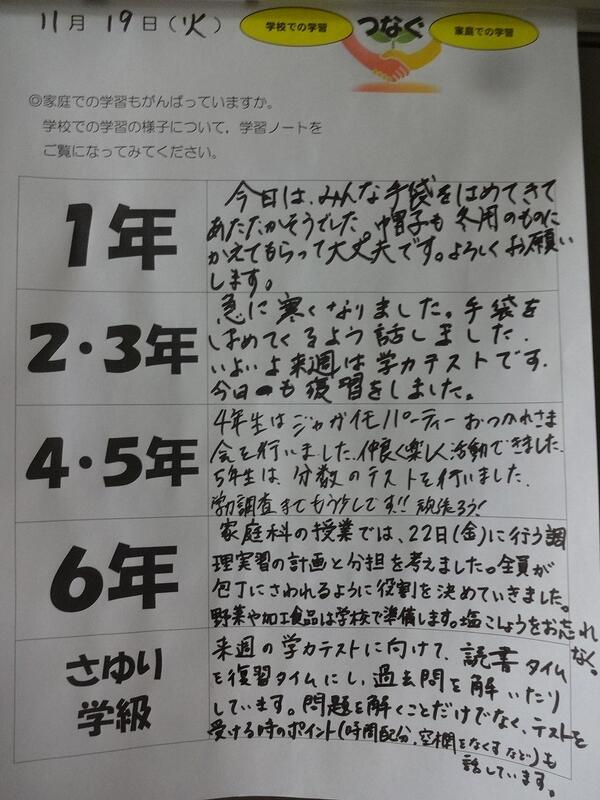 11月 19日(火)
学校での学習
つなぐ
家庭での学習
◎家庭での学習もがんばっていますか。
学校での学習の様子について，学習ノートを
ご覧になってみてください。
1年
今日は、みんな手袋をはめてきて
あたたかそうでした。帽子も冬用のものに
かえてもらって大丈夫です。よろしくお願い
します。
2・3年
急に寒くなりました。手袋を
はめてくるよう話しました。
いよいよ来週は学力テストです。
今日も復習をしました。
4・5年
4年生はジャガイモパーティーおつかれさま
会を行いました。仲良く楽しく活動できました。
5年生は、分数のテストを行いました。
学力調査までもう少しです!! 頑張ろう!
6年
家庭科の授業では、22日(金)に行う調
理実習の計画と分担を考えました。全員が
包丁にさわれるように役割を決めていきました。
野菜や加工食品は学校で準備します。塩こしょうをお忘れ
なく。
さゆり
学級
来週の学力テストに向けて、読書タイム
を復習タイムにし、過去問を解いたり
しています。問題を解くことだけでなく、テストを
受ける時のポイント(時間配分、空欄をなくすなど)も
話しています。